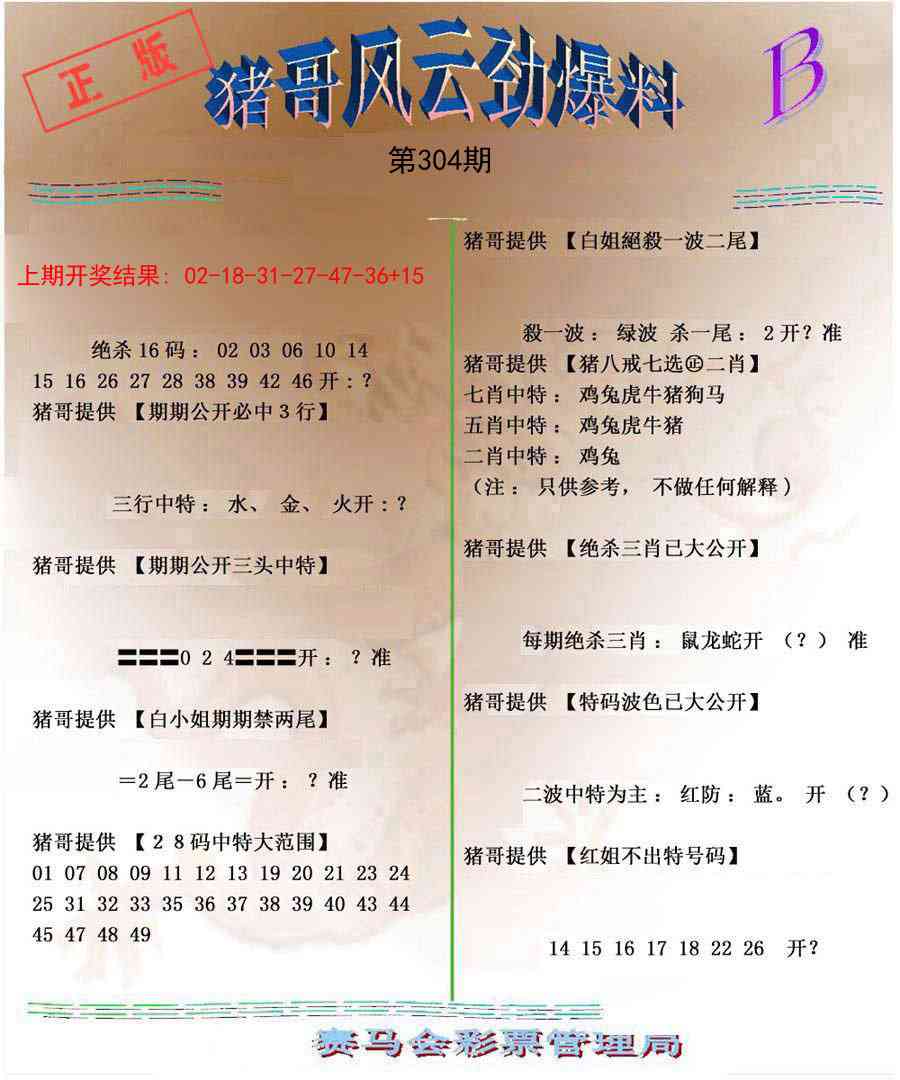 正版
猪哥风云劲爆料
B
第304期
上期开奖结果: 02-18-31-27-47-36+15
绝杀16码: 02 03 06 10 14
15 16 26 27 28 38 39 42 46开:?
猪哥提供 【期期公开必中3行】
三行中特: 水、 金、 火开:?
猪哥提供 【期期公开三头中特】
〓〓〓0 2 4〓〓〓开: ?准
猪哥提供 【白小姐期期禁两尾】
＝2尾－6尾＝开: ?准
猪哥提供 【28码中特大范围】
01 07 08 09 11 12 13 19 20 21 23 24
25 31 32 33 35 36 37 38 39 40 43 44
45 47 48 49
猪哥提供 【白姐絕殺一波二尾】
殺一波: 绿波 杀一尾: 2开?准
猪哥提供 【猪八戒七选㊣二肖】
七肖中特: 鸡兔虎牛猪狗马
五肖中特: 鸡兔虎牛猪
二肖中特: 鸡兔
(注: 只供参考, 不做任何解释)
猪哥提供 【绝杀三肖已大公开】
每期绝杀三肖: 鼠龙蛇开 (?) 准
猪哥提供 【特码波色已大公开】
二波中特为主: 红防: 蓝。 开 (?)
猪哥提供 【红姐不出特号码】
14 15 16 17 18 22 26 开?
赛马会彩票管理局